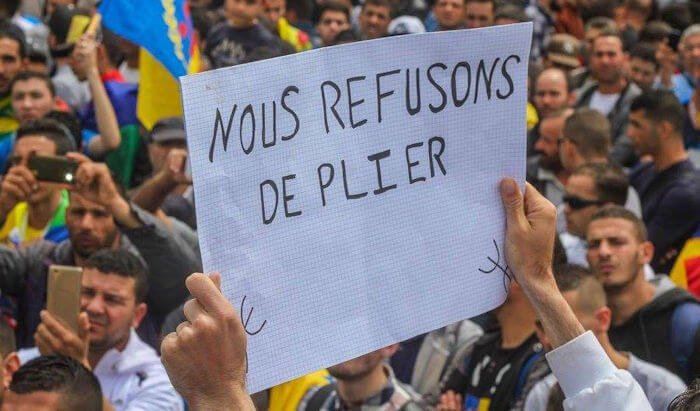 NOUS REFUSONS
DE PLIER